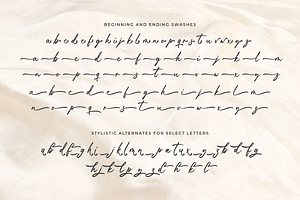 BEGINNING AND ENDING SWASHES
a b c d e f g h i j k l m n o p q r s t u v w x y z
a b c d e f g h i j k l m
n o p q r s t u v w x y z
a b c d e f g h i j k l m
n o p q r s t u v w x y z
STYLISTIC ALTERNATES FOR SELECT LETTERS